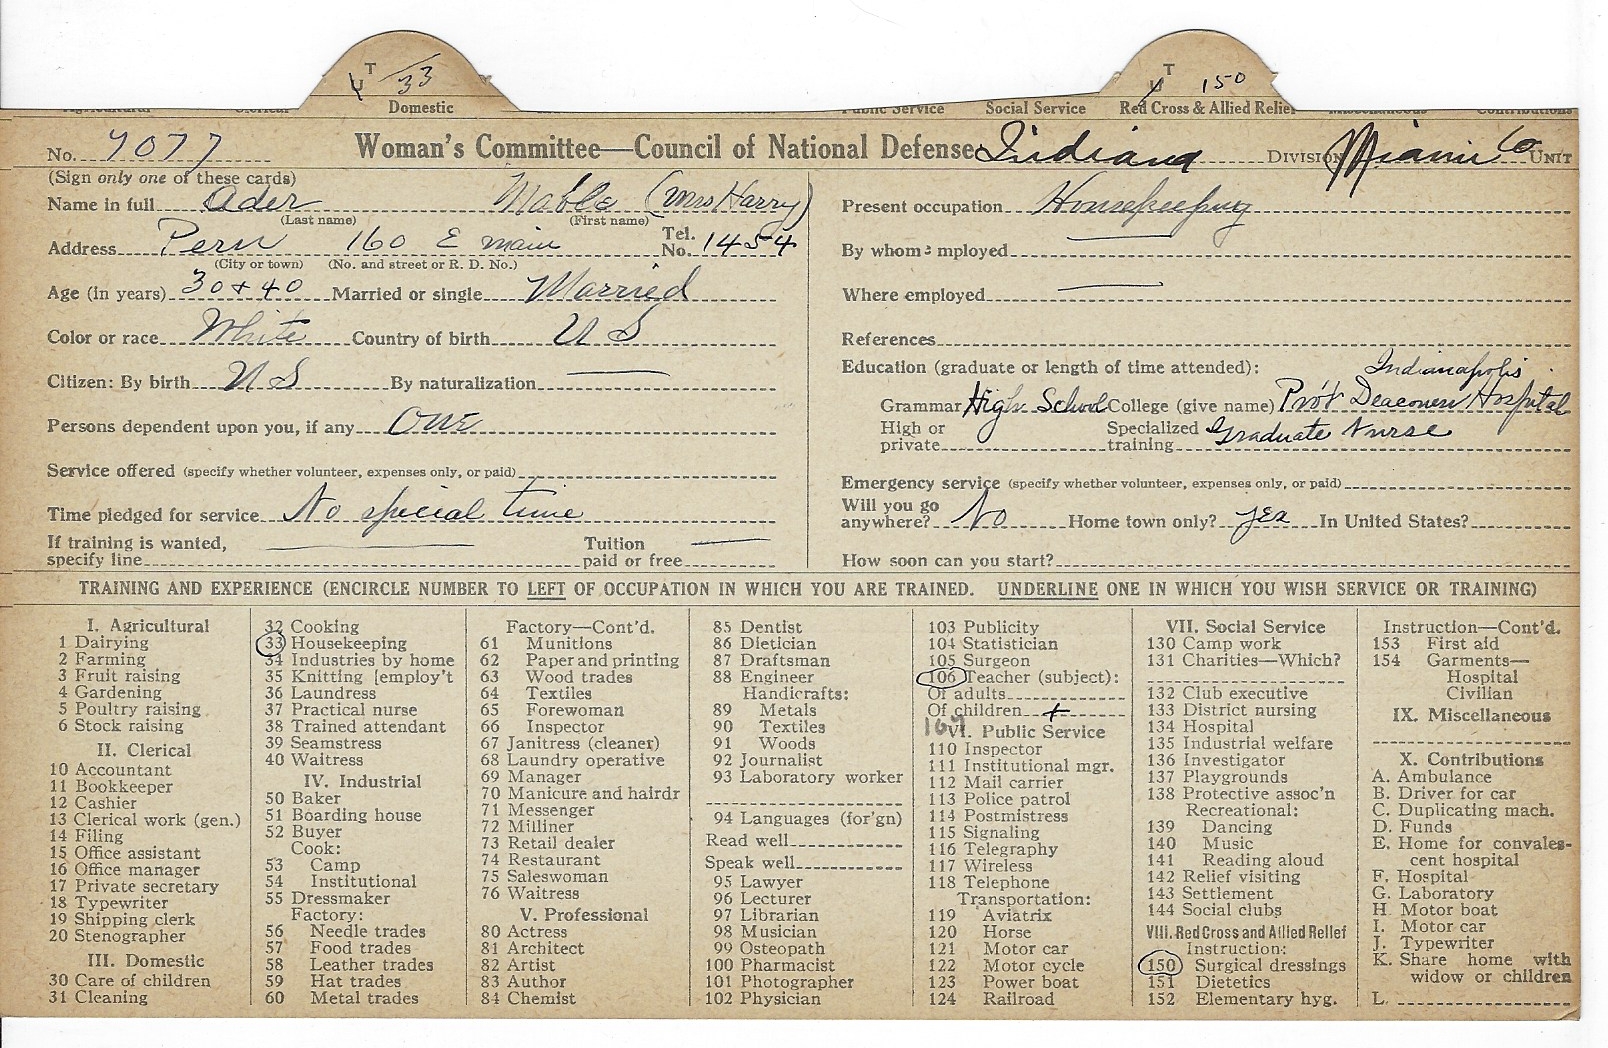 T
U 33
T
U 150
Domestic
Public Service Social Service Red Cross & Allied Relief Miscellaneous Contributions
No. 7077 Woman's Committee—Council of National Defense Indiana DIVISION Miami Co UNIT
(Sign only one of these cards)
Name in full Ader Mable (Mrs Harry)
(Last name) (First name)
Address Peru 160 E main Tel. No. 1454
(City or town) (No. and street or R. D. No.)
Age (in years) 30 + 40 Married or single Married
Color or race White Country of birth U S
Citizen: By birth U S By naturalization —
Persons dependent upon you, if any One
Service offered (specify whether volunteer, expenses only, or paid)
Time pledged for service No special time
If training is wanted, specify line — Tuition paid or free —
Present occupation Housekeeping
By whom employed —
Where employed —
References
Education (graduate or length of time attended): Indianapolis
Grammar High School College (give name) Pro't Deaconess Hospital
High or private Specialized training Graduate Nurse
Emergency service (specify whether volunteer, expenses only, or paid)
Will you go anywhere? No Home town only? yes In United States?
How soon can you start?
TRAINING AND EXPERIENCE (ENCIRCLE NUMBER TO LEFT OF OCCUPATION IN WHICH YOU ARE TRAINED. UNDERLINE ONE IN WHICH YOU WISH SERVICE OR TRAINING)
I. Agricultural
1 Dairying
2 Farming
3 Fruit raising
4 Gardening
5 Poultry raising
6 Stock raising
II. Clerical
10 Accountant
11 Bookkeeper
12 Cashier
13 Clerical work (gen.)
14 Filing
15 Office assistant
16 Office manager
17 Private secretary
18 Typewriter
19 Shipping clerk
20 Stenographer
III. Domestic
30 Care of children
31 Cleaning
32 Cooking
33 Housekeeping
34 Industries by home
35 Knitting [employ't
36 Laundress
37 Practical nurse
38 Trained attendant
39 Seamstress
40 Waitress
IV. Industrial
50 Baker
51 Boarding house
52 Buyer
Cook:
53 Camp
54 Institutional
55 Dressmaker
Factory:
56 Needle trades
57 Food trades
58 Leather trades
59 Hat trades
60 Metal trades
Factory—Cont'd.
61 Munitions
62 Paper and printing
63 Wood trades
64 Textiles
65 Forewoman
66 Inspector
67 Janitress (cleaner)
68 Laundry operative
69 Manager
70 Manicure and hairdr
71 Messenger
72 Milliner
73 Retail dealer
74 Restaurant
75 Saleswoman
76 Waitress
V. Professional
80 Actress
81 Architect
82 Artist
83 Author
84 Chemist
85 Dentist
86 Dietician
87 Draftsman
88 Engineer
Handicrafts:
89 Metals
90 Textiles
91 Woods
92 Journalist
93 Laboratory worker
94 Languages (for'gn)
Read well
Speak well
95 Lawyer
96 Lecturer
97 Librarian
98 Musician
99 Osteopath
100 Pharmacist
101 Photographer
102 Physician
103 Publicity
104 Statistician
105 Surgeon
106 Teacher (subject):
Of adults
Of children +
VI. Public Service
110 Inspector
111 Institutional mgr.
112 Mail carrier
113 Police patrol
114 Postmistress
115 Signaling
116 Telegraphy
117 Wireless
118 Telephone
Transportation:
119 Aviatrix
120 Horse
121 Motor car
122 Motor cycle
123 Power boat
124 Railroad
VII. Social Service
130 Camp work
131 Charities—Which?
132 Club executive
133 District nursing
134 Hospital
135 Industrial welfare
136 Investigator
137 Playgrounds
138 Protective assoc'n
Recreational:
139 Dancing
140 Music
141 Reading aloud
142 Relief visiting
143 Settlement
144 Social clubs
VIII. Red Cross and Allied Relief
Instruction:
150 Surgical dressings
151 Dietetics
152 Elementary hyg.
Instruction—Cont'd.
153 First aid
154 Garments—
Hospital
Civilian
IX. Miscellaneous
X. Contributions
A. Ambulance
B. Driver for car
C. Duplicating mach.
D. Funds
E. Home for convales-
cent hospital
F. Hospital
G. Laboratory
H. Motor boat
I. Motor car
J. Typewriter
K. Share home with
widow or children
L.